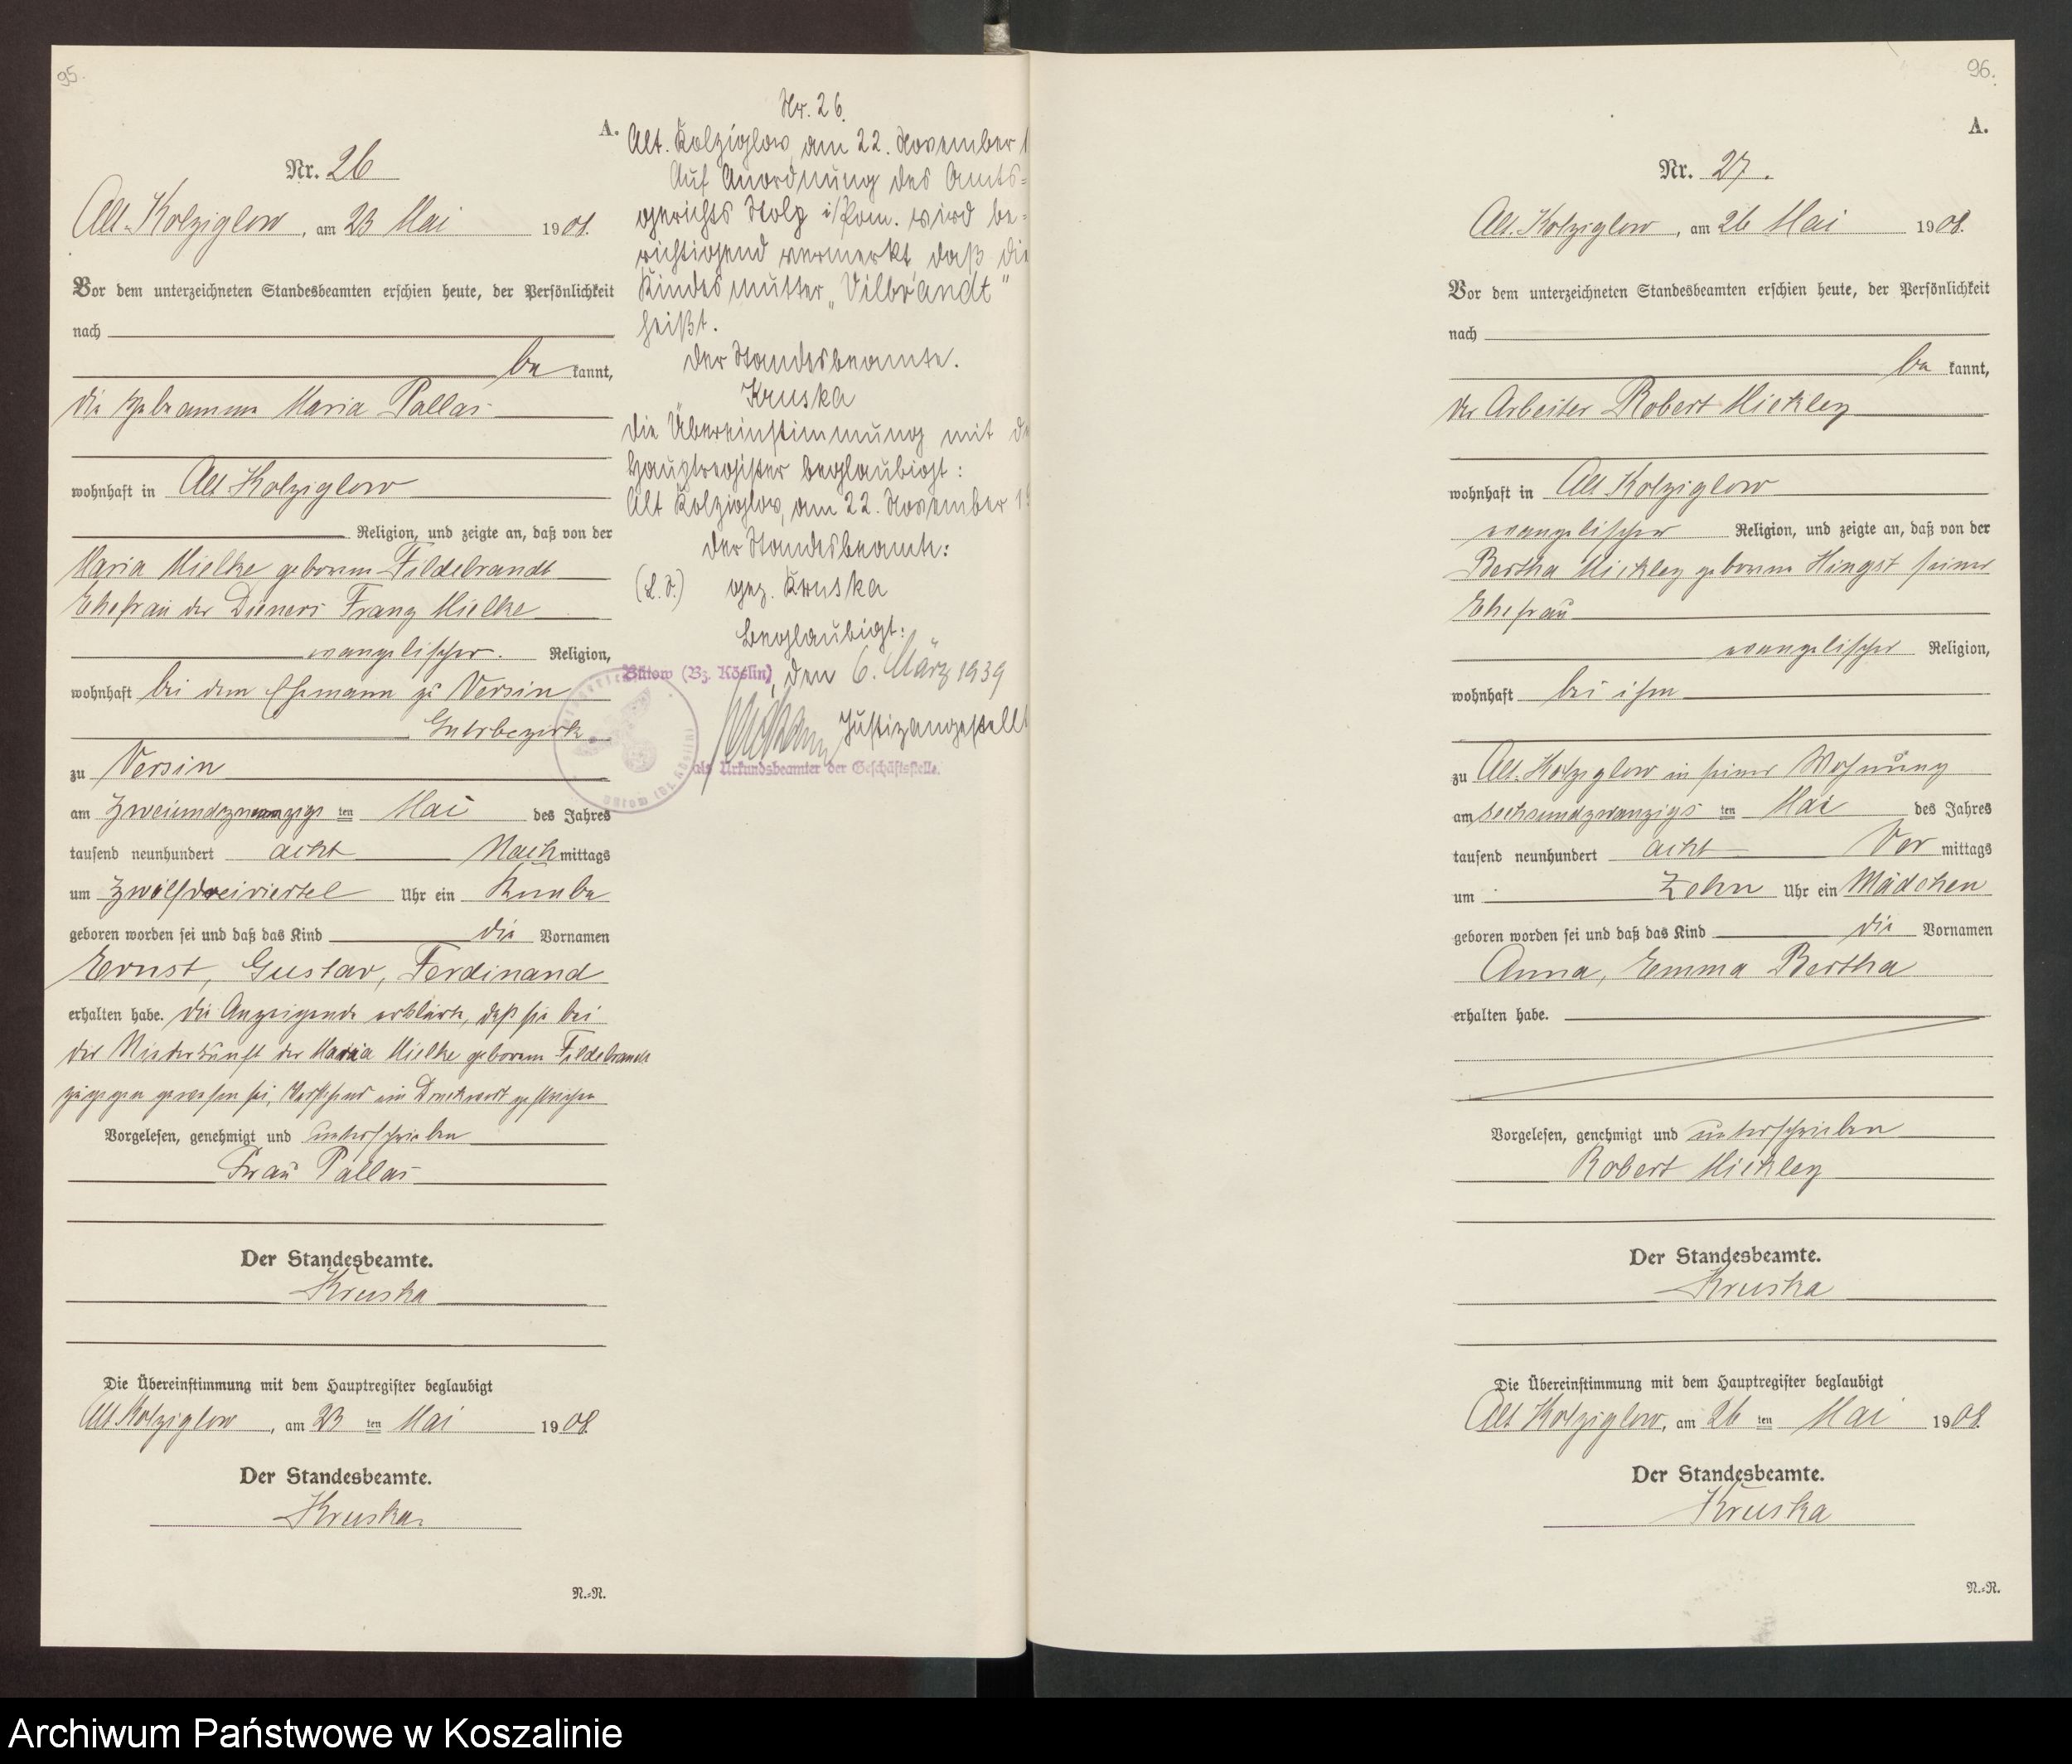 95.
A.
Nr. 26
Alt. Kolziglow, am 23 Mai 1908.
Vor dem unterzeichneten Standesbeamten erschien heute, der Persönlichkeit
nach
be kannt,
die Hebamme Maria Pallas
wohnhaft in Alt Kolziglow
Religion, und zeigte an, daß von der
Maria Mielke geborene Fildebrandt
Ehefrau des Dieners Franz Mielke
evangelischer. Religion,
wohnhaft bei dem Ehemann zu Versin
Gutsbezirk
zu Versin
am zweiundzwanzigs ten Mai des Jahres
tausend neunhundert acht Nach mittags
um zwölfdreiviertel Uhr ein Knabe
geboren worden sei und daß das Kind die Vornamen
Ernst, Gustav, Ferdinand
erhalten habe. Die Anzeigende erklärte, daß sie bei
der Niederkunft der Maria Mielke geborene Fildebrandt
zugegen gewesen sei, Vorstehend ein Druckwort gestrichen
Vorgelesen, genehmigt und unterschrieben
Frau Pallas
Der Standesbeamte.
Kruska
Die Übereinstimmung mit dem Hauptregister beglaubigt
Alt Kolziglow, am 23 ten Mai 1908.
Der Standesbeamte.
Kruska.
N.=N.
Nr. 26.
Alt. Kolziglow, am 22. November 1
Auf Anordnung des Amts=
gerichts Stolp i/Pom. wird be=
richtigend vermerkt daß die
Kindesmutter „Vilbrandt"
heißt.
Der Standesbeamte.
Kruska
Die Übereinstimmung mit de
Hauptregister beglaubigt:
Alt Kolziglow, am 22. November 19
Der Standesbeamte:
(L.S.) gez. Kruska
Beglaubigt:
Bütow (Bz. Köslin), den 6. März 1939
Justizangestellt
als Urkundsbeamter der Geschäftsstelle.
96.
A.
Nr. 27.
Alt. Kolziglow, am 26 Mai 1908.
Vor dem unterzeichneten Standesbeamten erschien heute, der Persönlichkeit
nach
be kannt,
der Arbeiter Robert Mickley
wohnhaft in Alt Kolziglow
evangelischer Religion, und zeigte an, daß von der
Bertha Mickley geborene Hingst seiner
Ehefrau
evangelischer Religion,
wohnhaft bei ihm
zu Alt. Kolziglow in seiner Wohnung
am sechsundzwanzigs ten Mai des Jahres
tausend neunhundert acht Vor mittags
um zehn Uhr ein Mädchen
geboren worden sei und daß das Kind die Vornamen
Anna, Emma Bertha
erhalten habe.
Vorgelesen, genehmigt und unterschrieben
Robert Mickley
Der Standesbeamte.
Kruska
Die Übereinstimmung mit dem Hauptregister beglaubigt
Alt Kolziglow, am 26 ten Mai 1908.
Der Standesbeamte.
Kruska
N.=N.
Archiwum Państwowe w Koszalinie